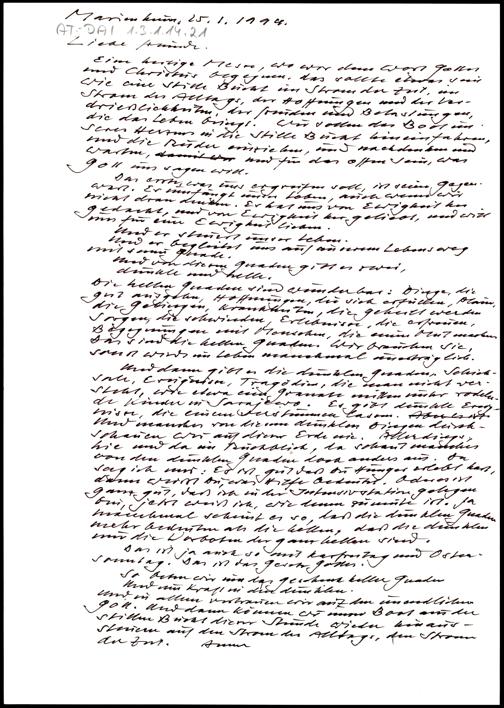 Marienheim, 25.1.1994.
AT-DAI 1.3.1.14.21
Liebe Freunde.
Eine heilige Messe, wo wir dem Wort Gottes
und Christus begegnen, das sollte etwas sein
wie eine stille Bucht im Strom der Zeit, im
Strom des Alltags, der Hoffnungen und der Ver-
drießlichkeiten, der Freuden und Belastungen,
die das Leben bringt. Wir sollen das Boot un-
seres Herzens in die stille Bucht hineinfahren,
und die Ruder einziehen, und nachdenken und
warten, und für das offen sein, was
Gott uns sagen will.
Das erste, was uns ergreifen soll, ist seine Gegen-
wart. Er umfängt mit Leben, auch wenn wir
nicht dran denken. Er hat uns von Ewigkeit her
gedacht, und von Ewigkeit her geliebt, und will
uns für eine Ewigkeit lieben.
Und er steuert unser Leben.
Und er begleitet uns auf unserem Lebensweg
mit seiner Gnade.
Und von diesen Gnaden gibt es zwei,
dunkle und helle.
Die hellen Gnaden sind wunderbar: Dinge, die
gut ausgehen, Hoffnungen, die sich erfüllen, Pläne,
die gelingen, Krankheiten, die geheilt werden
Sorgen, die schwinden, Erlebnisse, die erfreuen,
Begegnungen mit Menschen, die einem Mut machen.
Das sind die hellen Gnaden. Wir brauchen sie,
sonst wird uns Leben manchmal unerträglich.
Und dann gibt es die dunklen Gnaden, Schick-
sale, Ereignisse, Tragödien, die man nicht ver-
steht, wie etwa eine Granate mitten unter rodeln-
de Kinder in Sarajewo. Es gibt dunkle Ereig-
nisse, die einen verstummen lassen.
Und manches von diesen dunklen Dingen durch-
schauen wir auf dieser Erde nie. Allerdings,
hie und da im Rückblick, da schaut manches
von den dunklen Gnaden doch anders aus. Da
sag ich mir: Es ist gut, daß Du Hunger erlebt hast,
dann weißt Du, was Hilfe bedeutet. Oder es ist
ganz gut, daß ich in der Intensivstation gelegen
bin, jetzt weiß ich, wie denen zumute ist. Ja
manchmal scheint es so, daß die dunklen Gnaden
mehr bedeuten als die hellen, daß die dunklen
nur die Vorboten der ganz hellen sind.
Das ist ja auch so mit Karfreitag und Oster-
sonntag. Das ist das Gesetz Gottes.
So beten wir um das Geschenk heller Gnaden
Und um Kraft in den dunklen.
Und in allem vertrauen wir auf den unendlichen
Gott. Und dann können wir unser Boot aus der
stillen Bucht dieser Stunde wieder hinaus-
steuern auf den Strom des Alltags, den Strom
der Zeit. Amen